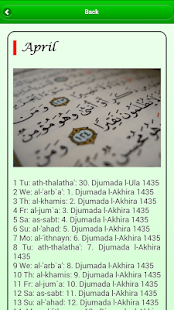 Back
April
1 Tu: ath-thalatha': 30. Djumada l-Ula 1435
2 We: al-'arb`a': 1. Djumada l-Akhira 1435
3 Th: al-khamis: 2. Djumada l-Akhira 1435
4 Fr: al-jum`a: 3. Djumada l-Akhira 1435
5 Sa: as-sabt: 4. Djumada l-Akhira 1435
6 Su: al-'ahad: 5. Djumada l-Akhira 1435
7 Mo: al-'ithnayn: 6. Djumada l-Akhira 1435
8 Tu: ath-thalatha': 7. Djumada l-Akhira
1435
9 We: al-'arb`a': 8. Djumada l-Akhira 1435
10 Th: al-khamis: 9. Djumada l-Akhira 1435
11 Fr: al-jum`a: 10. Djumada l-Akhira 1435
12 Sa: as-sabt: 11. Djumada l-Akhira 1435
13 Su: al-'ahad: 12. Djumada l-Akhira 1435